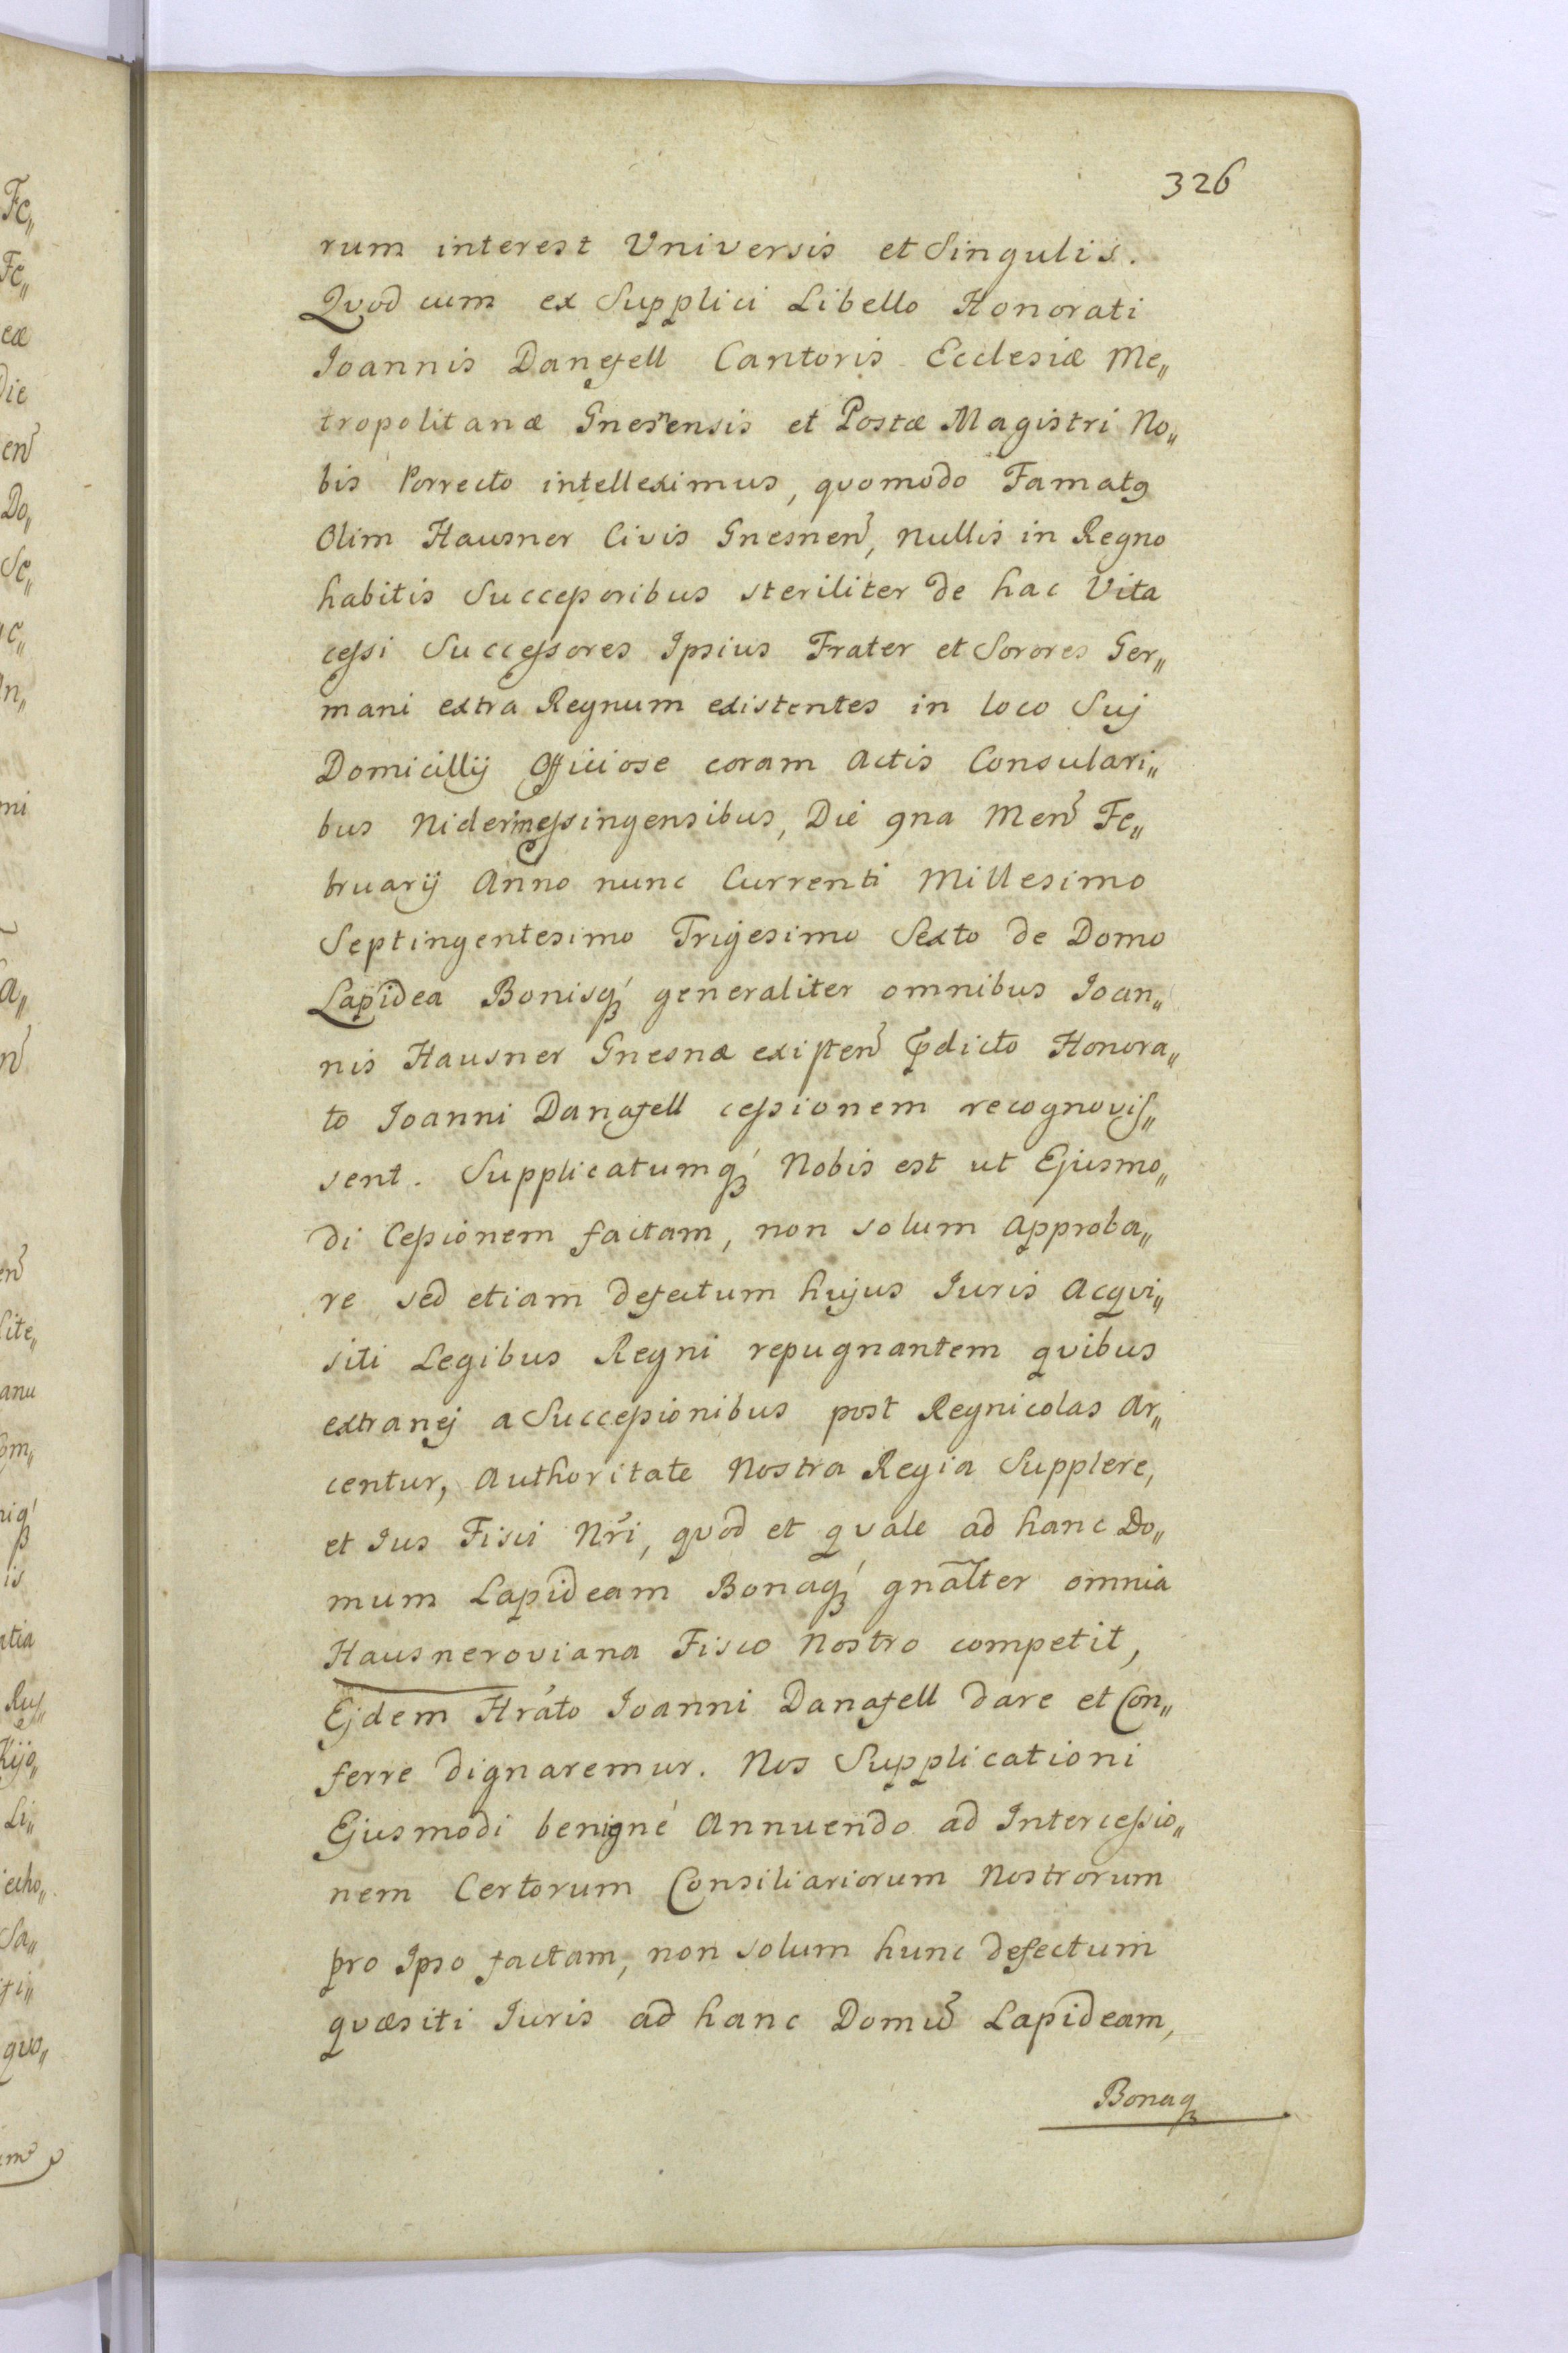 326
rum interest Universis et Singulis.
Qvod cum ex Supplici Libello Honorati
Joannis Danefell Cantoris Ecclesiæ Me„
tropolitanæ Gnesnensis et Postæ Magistri No„
bis Porrecto intelleximus, qvomodo Famatꝯ
Olim Hausner Civis Gnesnen̄, nullis in Regno
habitis Succeſsoribus steriliter de hac Vita
ceſsi Succeſsores Ipsius Frater et Sorores Ger„
mani extra Regnum existentes in loco Suj
Domicillij Officiose coram Actis Consulari„
bus Nidermeſsingensibus, Die 9na Men̄ Fe„
bruarij Anno nunc Currenti Millesimo
Septingentesimo Trigesimo Sexto de Domo
Lapidea Bonisq́ꝫ generaliter omnibus Joan„
nis Hausner Gnesnæ existen̄ Prædicto Honora„
to Joanni Danafell ceſsionem recognoviſ„
sent. Supplicatumq́ꝫ Nobis est ut Ejusmo„
di Ceſsionem factam, non solum Approba„
re sed etiam defectum hujus Juris Acqvi„
siti Legibus Regni repugnantem qvibus
extranej a Succeſsionibus post Regnicolas Ar„
centur, Authoritate Nostra Regia Supplere,
et Jus Fisci Nr̃i, qvod et qvale ad hanc Do„
mum Lapideam Bonaq́ꝫ gnãlter omnia
Hausneroviana Fisco Nostro competit,
Ejdem Hráto Joanni Danafell dare et Con„
ferre dignaremur. Nos Supplicationi
Ejusmodi benigné Annuendo ad Interceſsio„
nem Certorum Consiliariorum Nostrorum
pro Ipso factam, non solum hunc defectum
qvæsiti Juris ad hanc Domū Lapideam,
Bonaqꝫ